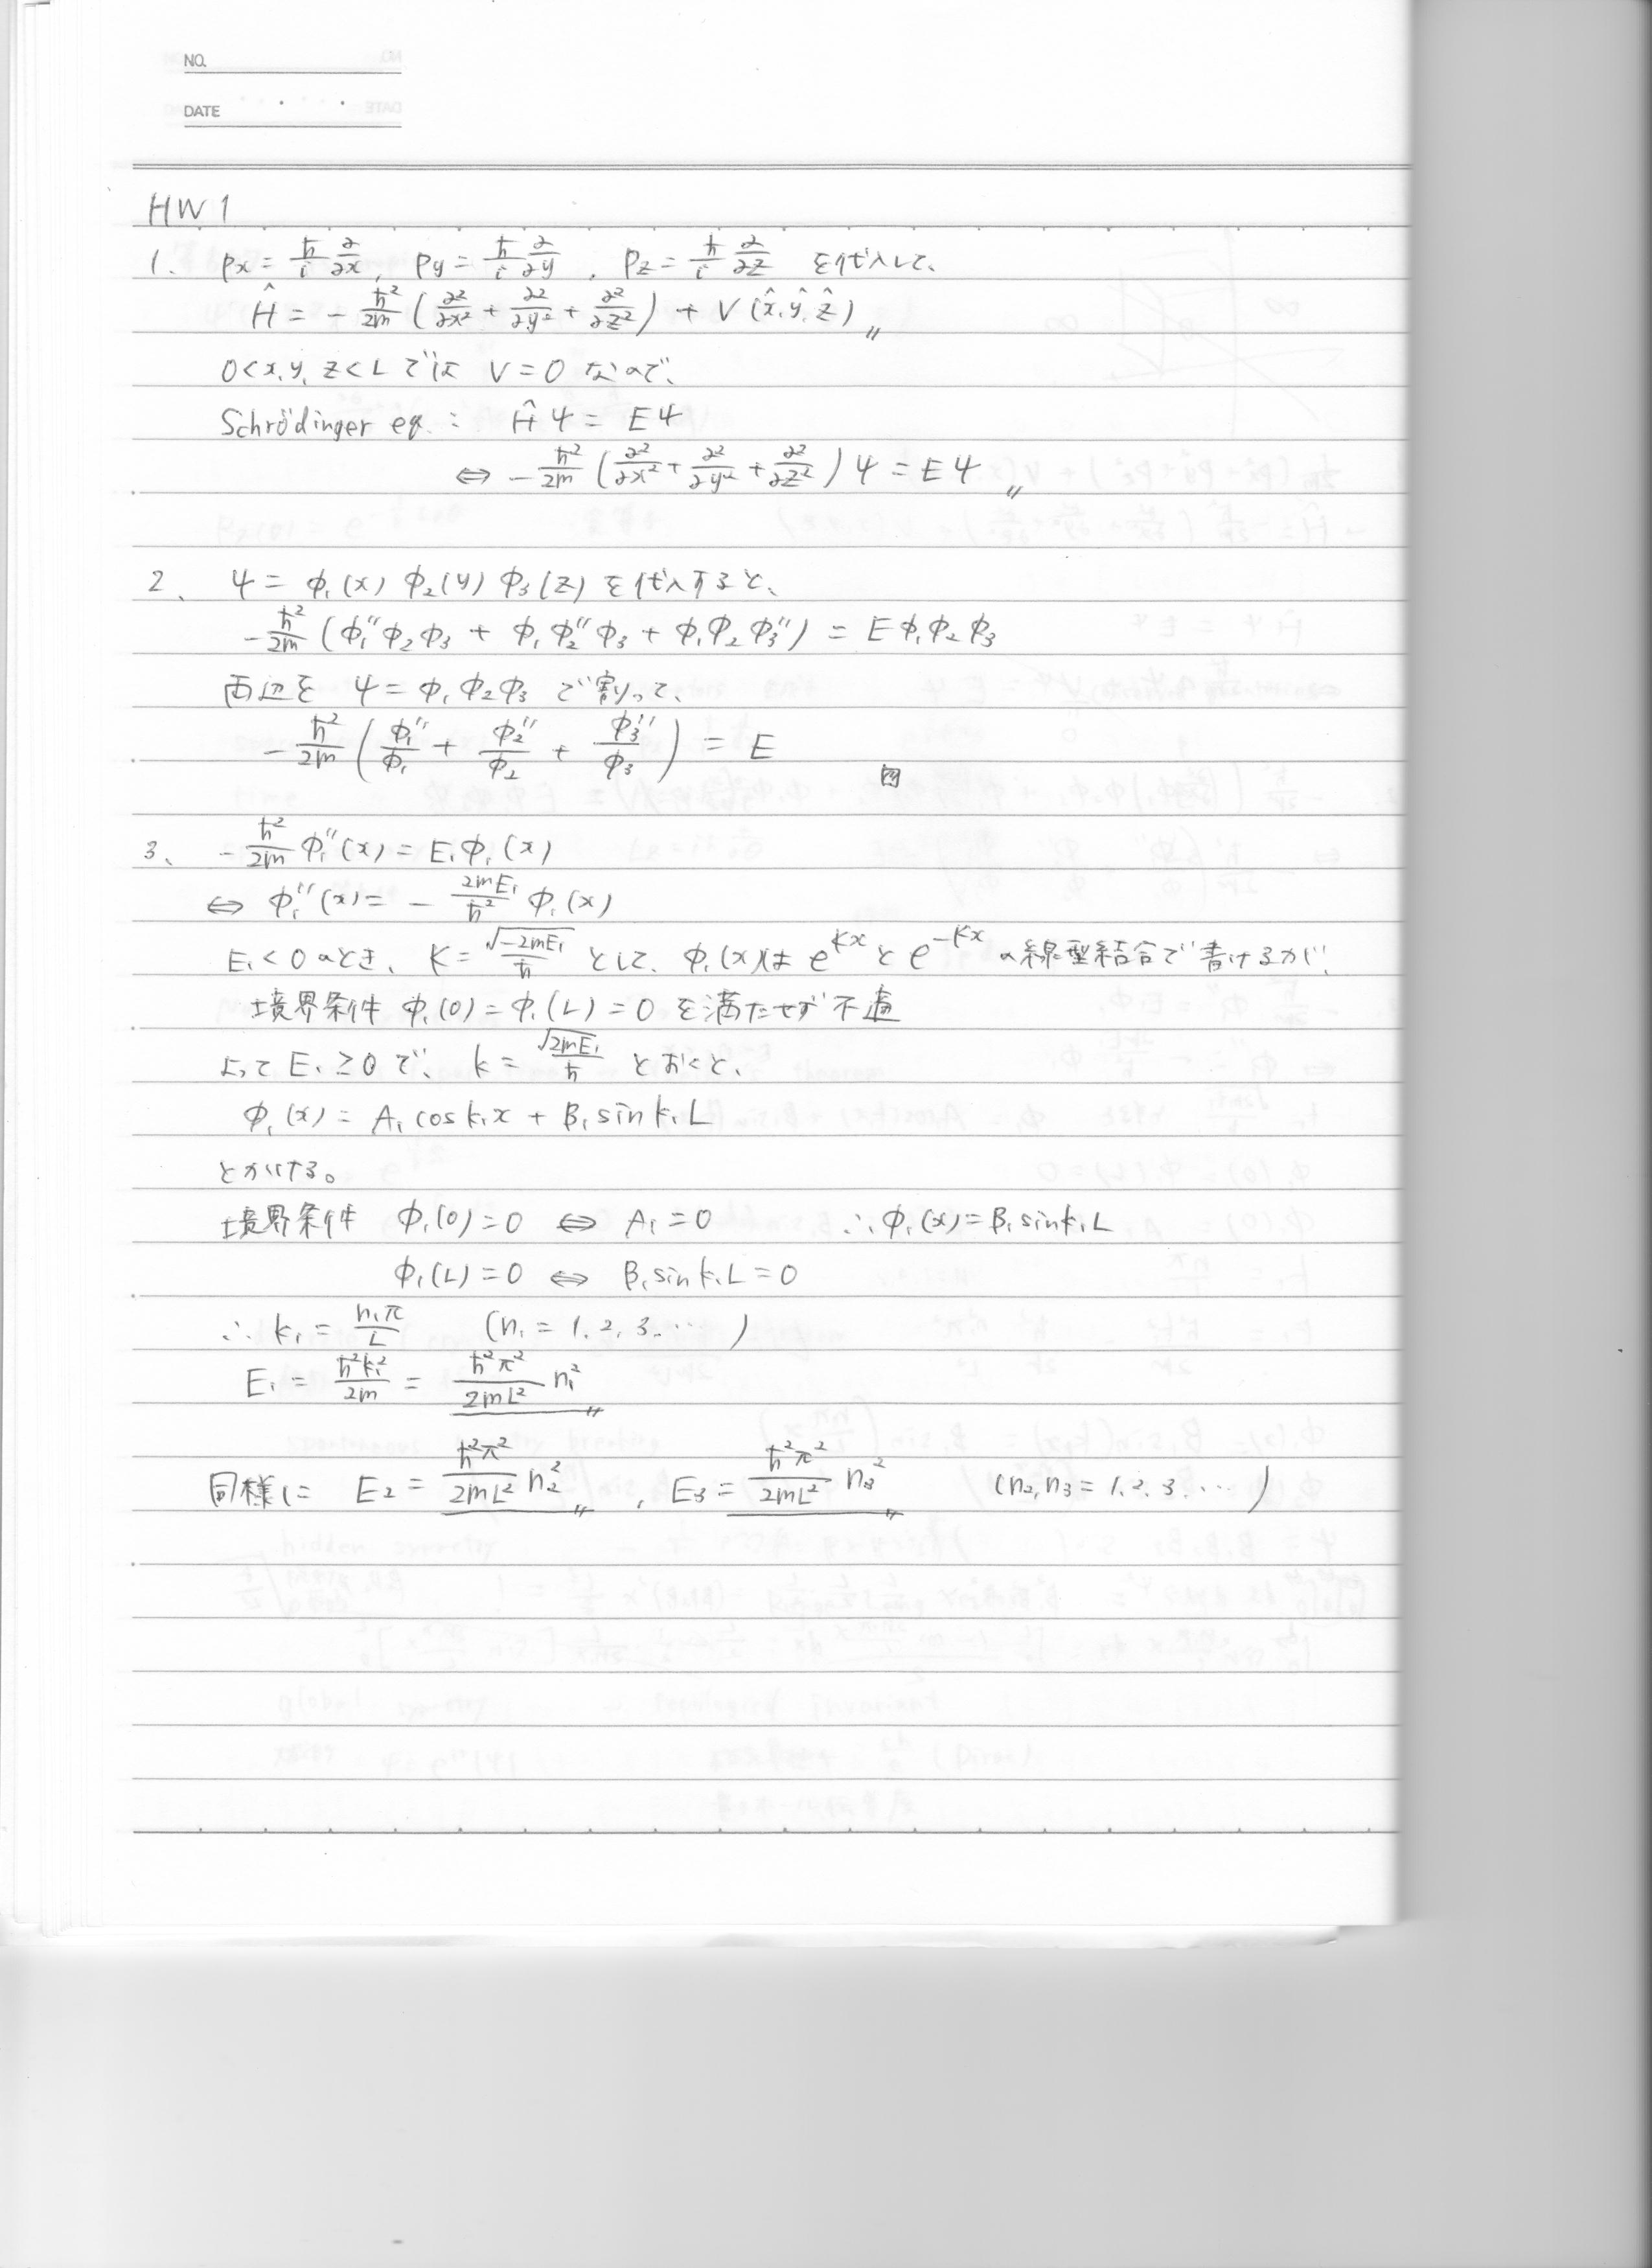 NO.
DATE
HW1
1. px = ħ/i ∂/∂x, py = ħ/i ∂/∂y, pz = ħ/i ∂/∂z を代入して、
Ĥ = - ħ²/2m (∂²/∂x² + ∂²/∂y² + ∂²/∂z²) + V(x̂, ŷ, ẑ) 〃
0<x, y, z<L では V=0 なので、
Schrödinger eq. : Ĥψ = Eψ
⇔ - ħ²/2m (∂²/∂x² + ∂²/∂y² + ∂²/∂z²) ψ = Eψ 〃
2、 ψ = φ₁(x) φ₂(y) φ₃(z) を代入すると、
- ħ²/2m (φ₁''φ₂φ₃ + φ₁φ₂''φ₃ + φ₁φ₂φ₃'') = E φ₁φ₂φ₃
両辺を ψ = φ₁φ₂φ₃ で割って、
- ħ²/2m (φ₁''/φ₁ + φ₂''/φ₂ + φ₃''/φ₃) = E
3、 - ħ²/2m φ₁''(x) = E₁φ₁(x)
⇔ φ₁''(x) = - 2mE₁/ħ² φ₁(x)
E₁<0のとき、 K = √-2mE₁/ħ として、φ₁(x)は e^Kx と e^-Kx の線型結合で書けるが、
境界条件 φ₁(0) = φ₁(L) = 0 を満たせず不適
よって E₁≥0 で、 k = √2mE₁/ħ とおくと、
φ₁(x) = A₁ cos k₁x + B₁ sin k₁L
とかける。
境界条件 φ₁(0)=0 ⇔ A₁=0 ∴φ₁(x)=B₁sink₁L
φ₁(L)=0 ⇔ B₁sink₁L=0
∴ k₁ = n₁π/L (n₁ = 1, 2, 3, …)
E₁ = ħ²k₁²/2m = ħ²π²/2mL² n₁² 〃
同様に E₂ = ħ²π²/2mL² n₂² 〃, E₃ = ħ²π²/2mL² n₃² 〃 (n₂, n₃ = 1, 2, 3, …)